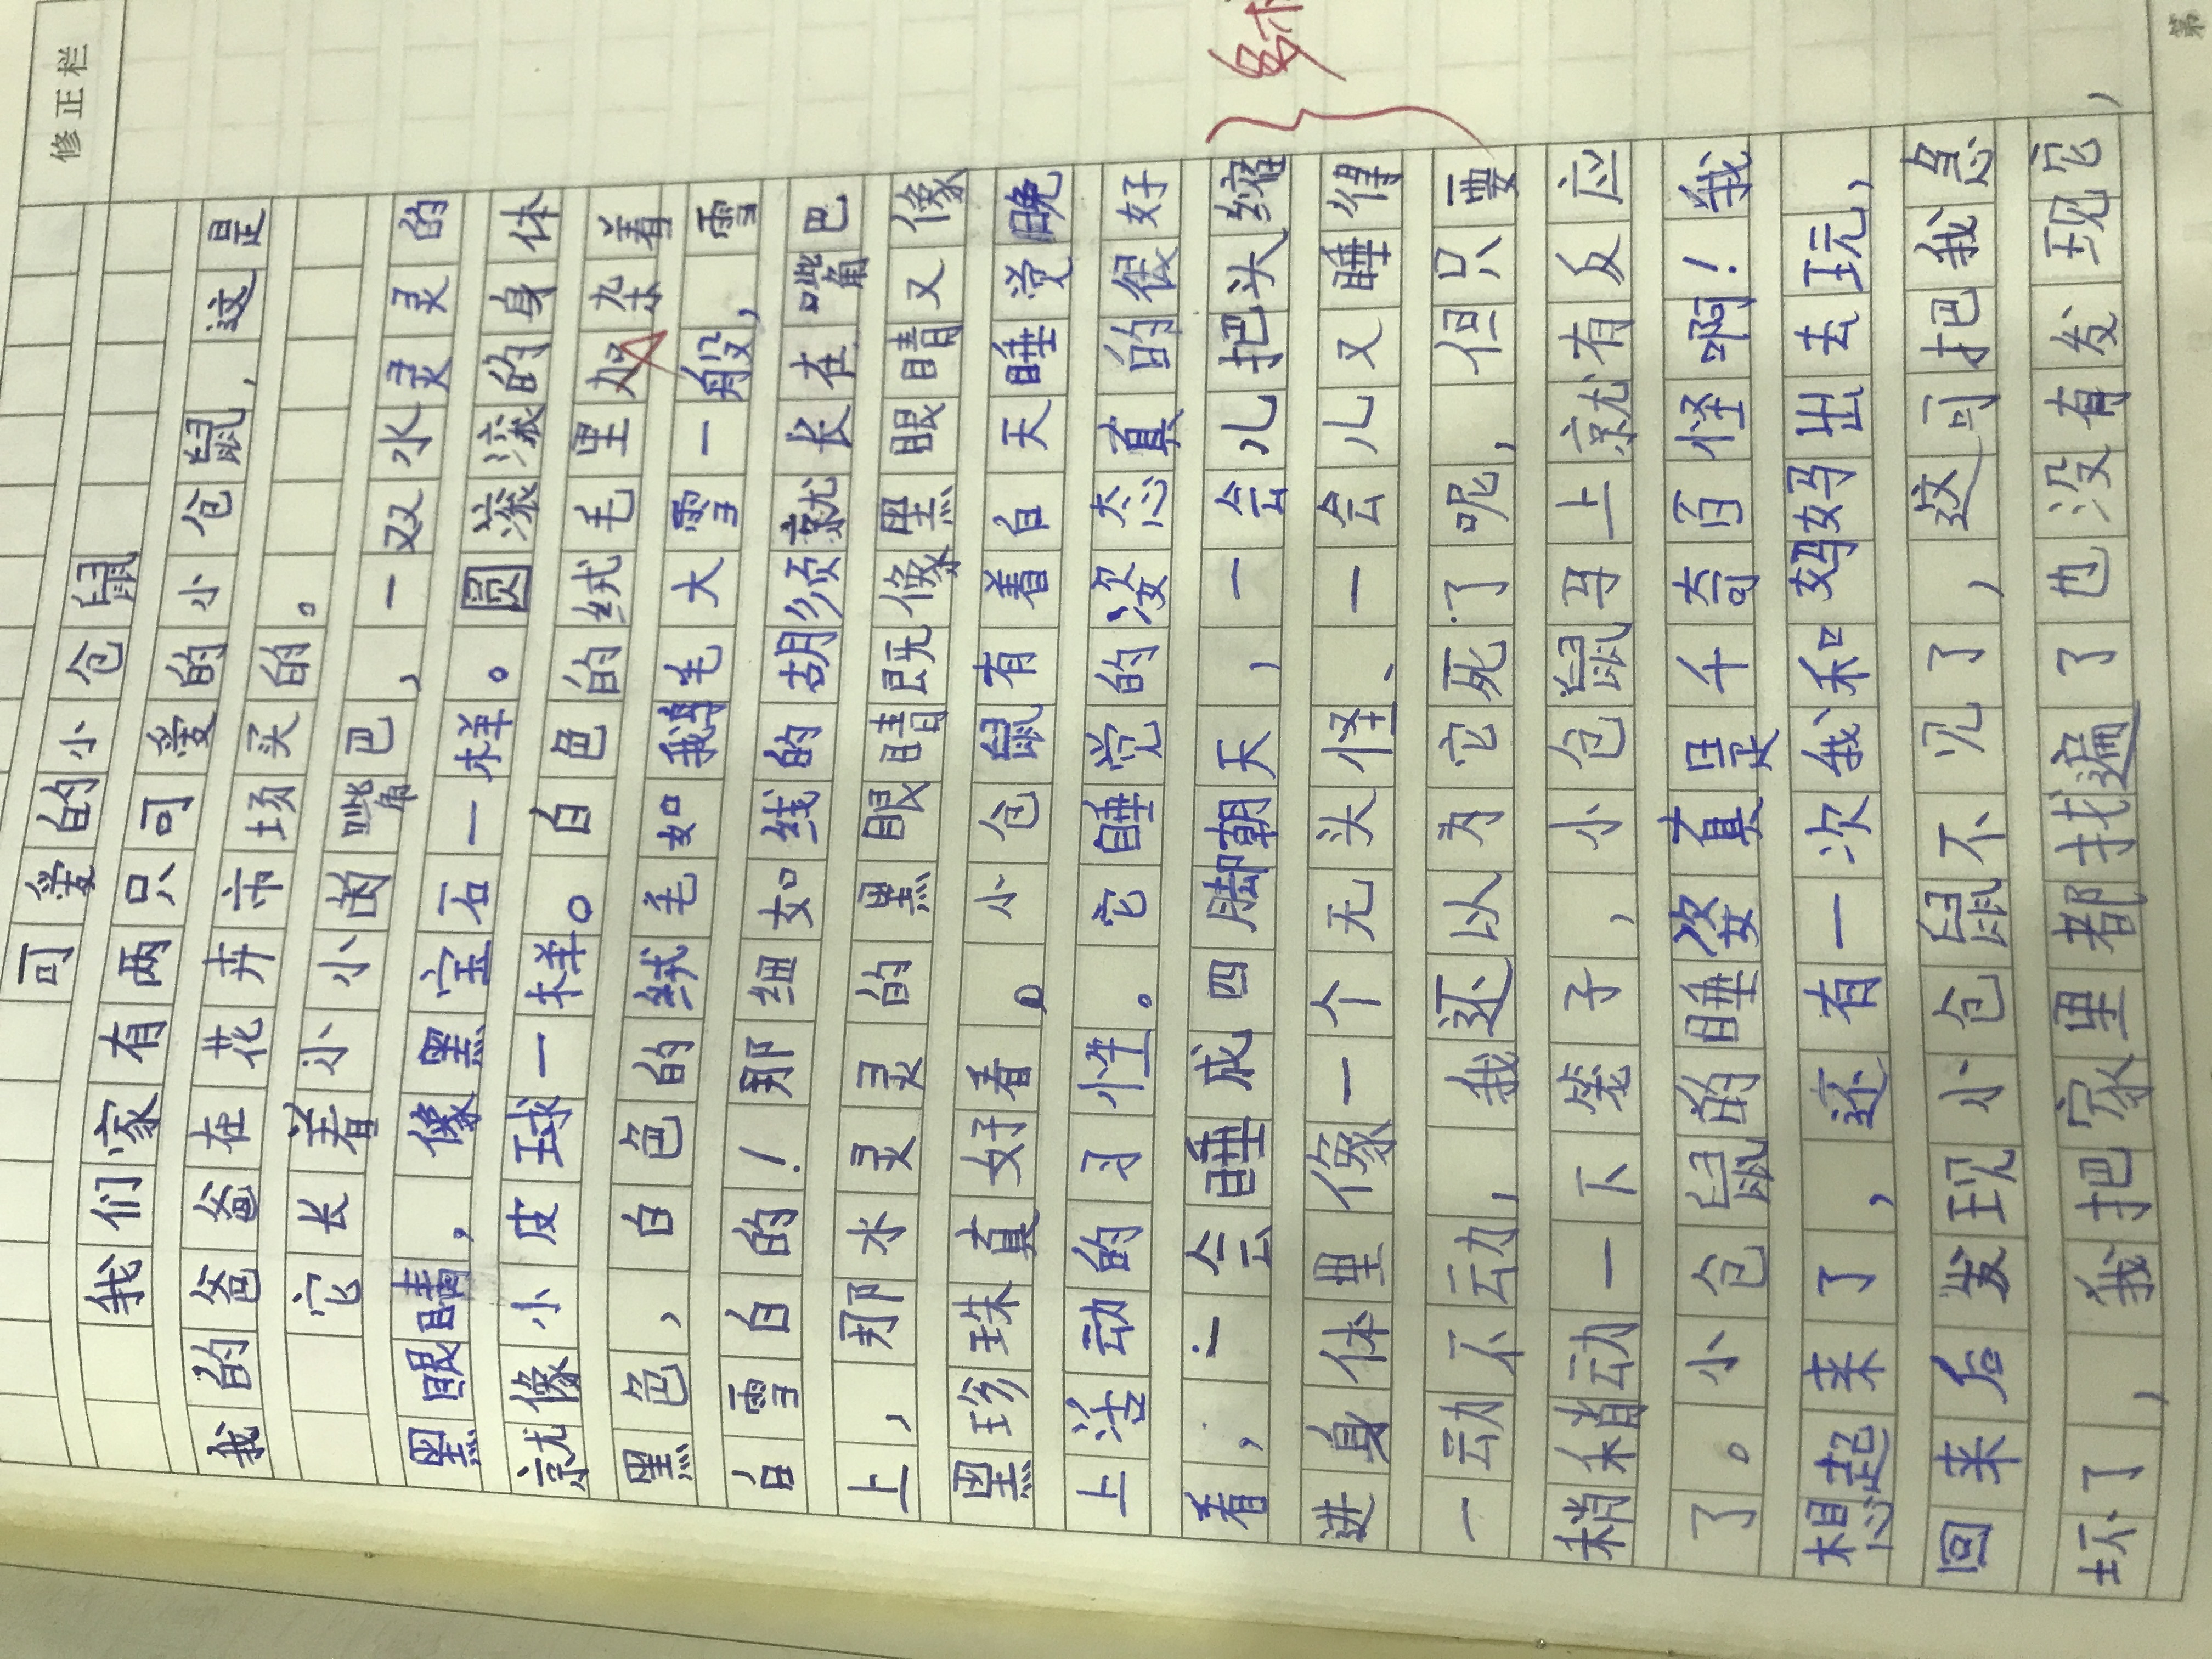 修正栏
可爱的小仓鼠
我们家有两只可爱的小仓鼠,这是
我的爸爸在花卉市场买的。
它长着小小的嘴巴,一双水灵灵的
黑眼睛,像黑宝石一样。圆滚滚的身体
就像小皮球一样。白色的绒毛里夹杂着
黑色,白色的绒毛如鹅毛大雪一般,雪
白雪白的!那细如线的胡须就长在嘴巴
上,那水灵灵的黑眼睛既像黑眼睛又像
黑珍珠真好看。小仓鼠有着白天睡觉晚
上活动的习性。它睡觉的姿态真的很好
看,一会睡成四脚朝天,一会儿把头缩
进身体里像一个无头怪、一会儿又睡得
一动不动,我还以为它死了呢,但只要
稍稍动一下笼子,小仓鼠马上就有反应
了。小仓鼠的睡姿真是千奇百怪啊!我
想起来了,还有一次我和妈妈出去玩,
回来后发现小仓鼠不见了,这可把我急
坏了,我把家里都找遍了也没有发现它,
第